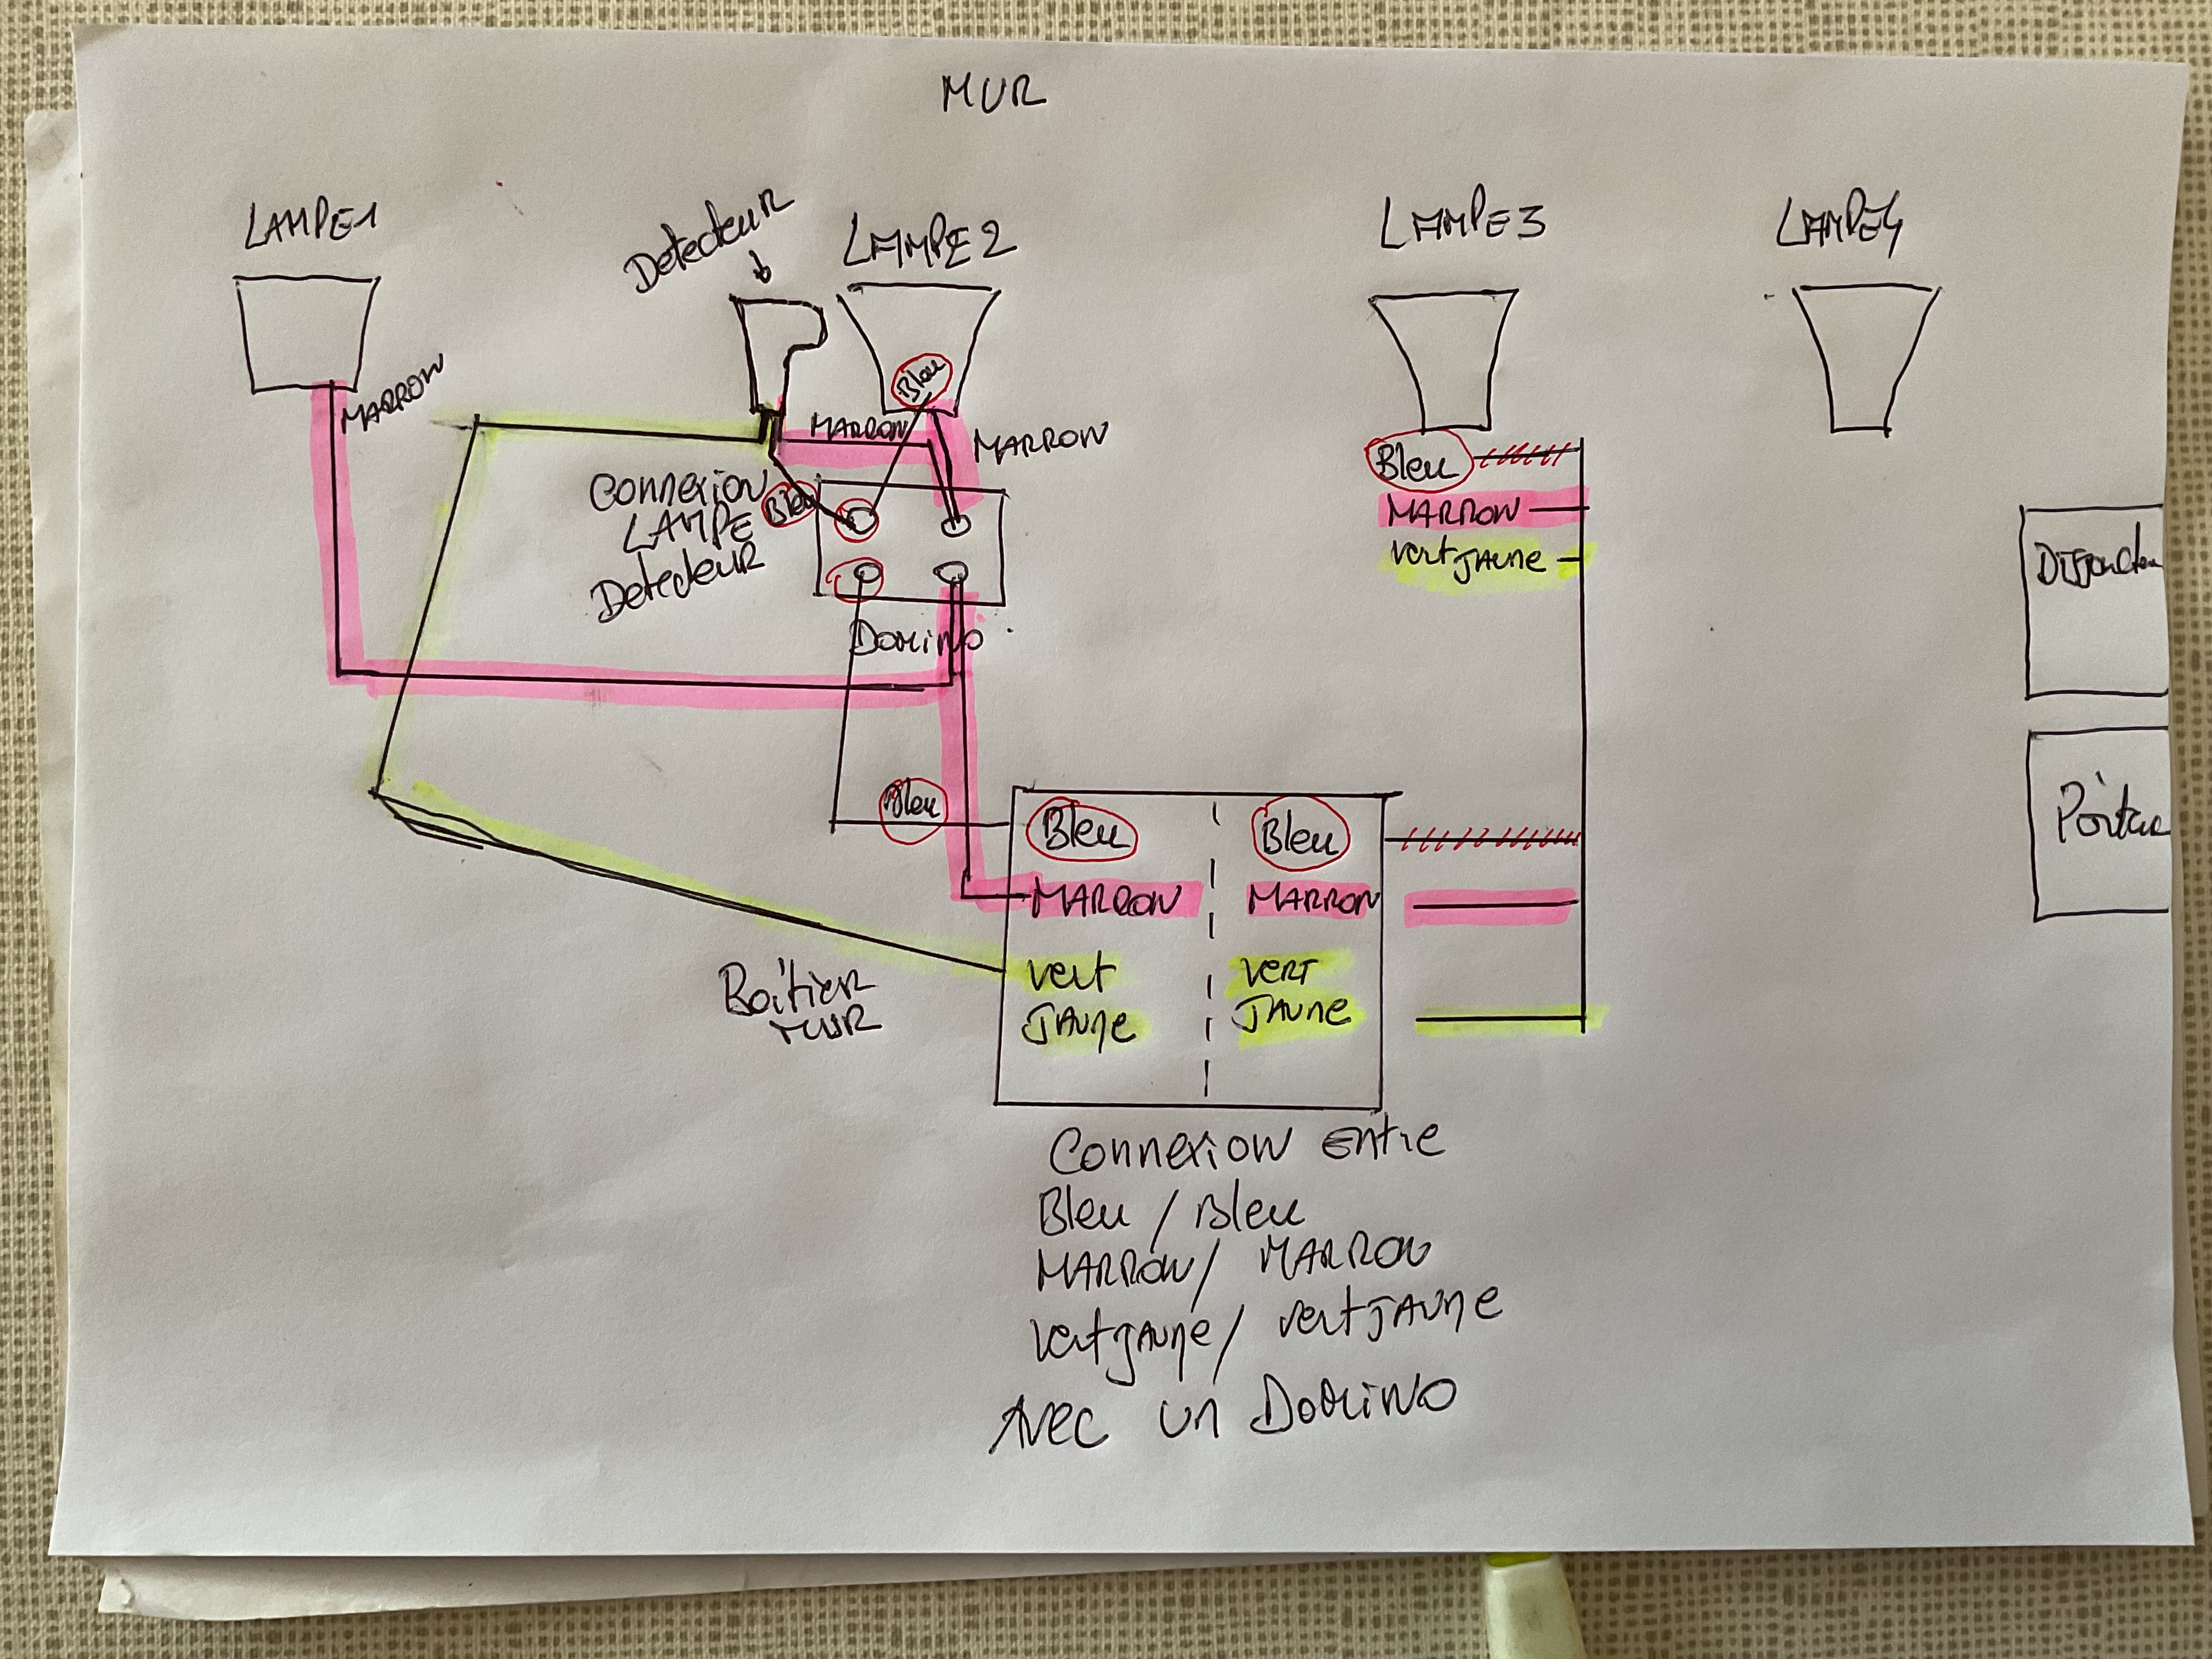 MUR
LAMPE1
Detecteur
LAMPE2
LAMPE3
LAMPE4
MARRON
Bleu
MARRON
MARRON
Connexion
LAMPE
Detecteur
Bleu
Bleu
MARRON
Vert JAune
Domino
Bleu
Bleu
Bleu
MARRON
MARRON
Vert
JAune
VERT
JAune
Boîtier
MUR
Connexion Entre
Bleu / Bleu
MARRON / MARRON
Vert JAune / Vert JAune
Avec un Domino